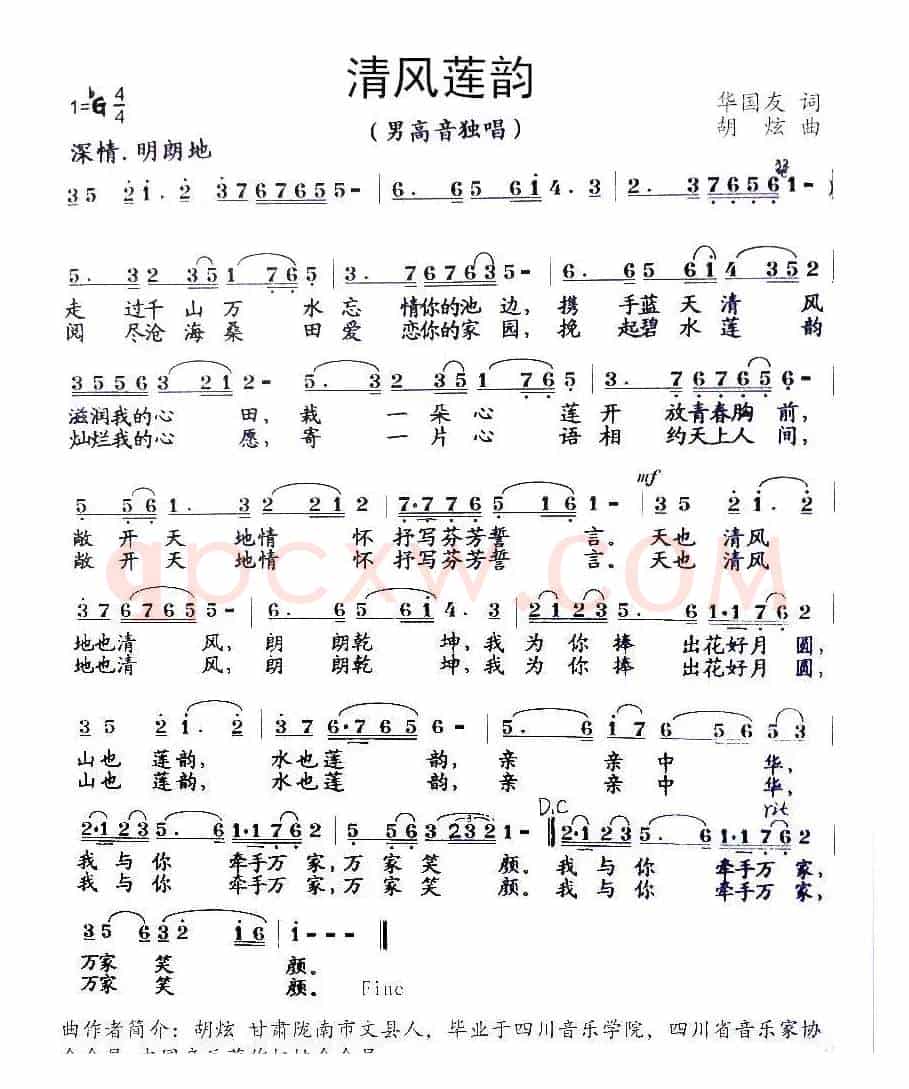 清风莲韵
1=♭G 4/4
（男高音独唱）
华国友 词
胡 炫 曲
深情.明朗地
35 2i.2 3767655- | 6. 65 66i4.3 | 2. 376561-
5. 32 351 765 | 3. 767635 | 6. 65 6i4 352
走 过千山万 水忘 情你的池边，携 手蓝天清 风
阅 尽沧海桑 田爱 恋你的家园，挽 起碧水莲 韵
35563 212- | 5. 32 351 765 | 3. 767656-
滋润我的心 田，栽 一朵心 莲开 放青春胸前，
灿烂我的心 愿，寄 一片心 语相 约天上人间，
mf
5 561. 32 212 | 7·7765 161- | 35 2i.2
敞开天 地情 怀 抒写芬芳誓 言。天也 清风
敞开天 地情 怀 抒写芬芳誓 言。天也 清风
3767655- | 6. 6566i4.3 | 21235. 6 1·1762
地也清 风，朗 朗乾 坤，我为你捧 出花好月圆，
地也清 风，朗 朗乾 坤，我为你捧 出花好月圆，
35 2i.2 | 376·7656- | 5. 6i76 56553
山也 莲韵， 水也莲 韵，亲 亲中 华，
山也 莲韵， 水也莲 韵，亲 亲中 华，
D.C
rit
2·1235. 6 1·1762 | 5 563 2321- 2·1235. 6 | 1·1762
我与你 牵手万家，万家笑 颜。我与你 牵手万家，
我与你 牵手万家，万家笑 颜。我与你 牵手万家，
35 632 i6 | i---
万家 笑 颜。
万家 笑 颜。 Fine
qpcxw.COM
曲作者简介：胡炫 甘肃陇南市文县人，毕业于四川音乐学院，四川省音乐家协